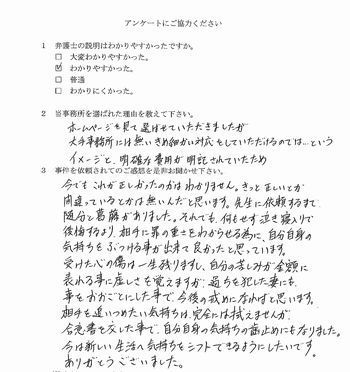 アンケートにご協力ください
1 弁護士の説明はわかりやすかったですか。
□ 大変わかりやすかった。
☑ わかりやすかった。
□ 普通
□ わかりにくかった。
2 当事務所を選ばれた理由を教えて下さい。
ホームページを見て選ばせていただきましたが
大手事務所には無いきめ細かい対応をしていただけるのでは…という
イメージと、明確な費用が明記されていたため
3 事件を依頼されてのご感想を是非お聞かせ下さい。
今でもこれが正しかったのかはわかりません。きっと正しいとか
間違っているとかは無いんだと思います。先生に依頼するまで
随分と葛藤がありました。それでも、何もせず泣き寝入りで
後悔するより、相手に罪の重さをわからせる為に、自分自身の
気持ちをぶつける事が出来て良かったと思っています。
受けた心の傷は一生残りますし、自分の苦しみが金額に
表れる事に虚しさを覚えますが、過ちを犯した妻にも、
事をおおごとにした事で、今後の戒めになればと思います。
相手を追いつめたい気持ちは、完全には拭えませんが、
合意書を交した事で、自分自身の気持ちの歯止めにもなりました。
今は新しい生活へ気持ちをシフトできるようにしたいです。
ありがとうございました。